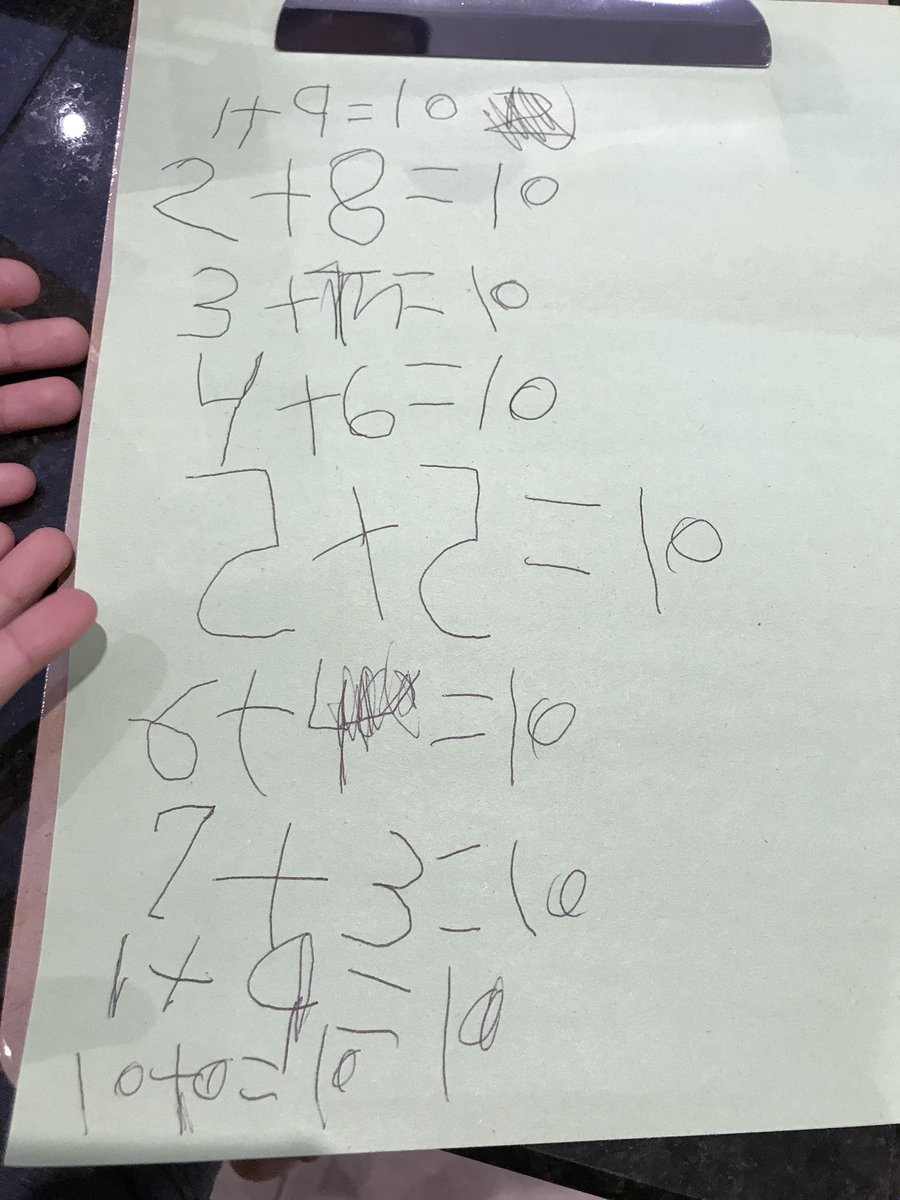 1+9=10
2+8=10
3+7=10
4+6=10
5+5=10
6+4=10
7+3=10
1+9=10
10+0=10